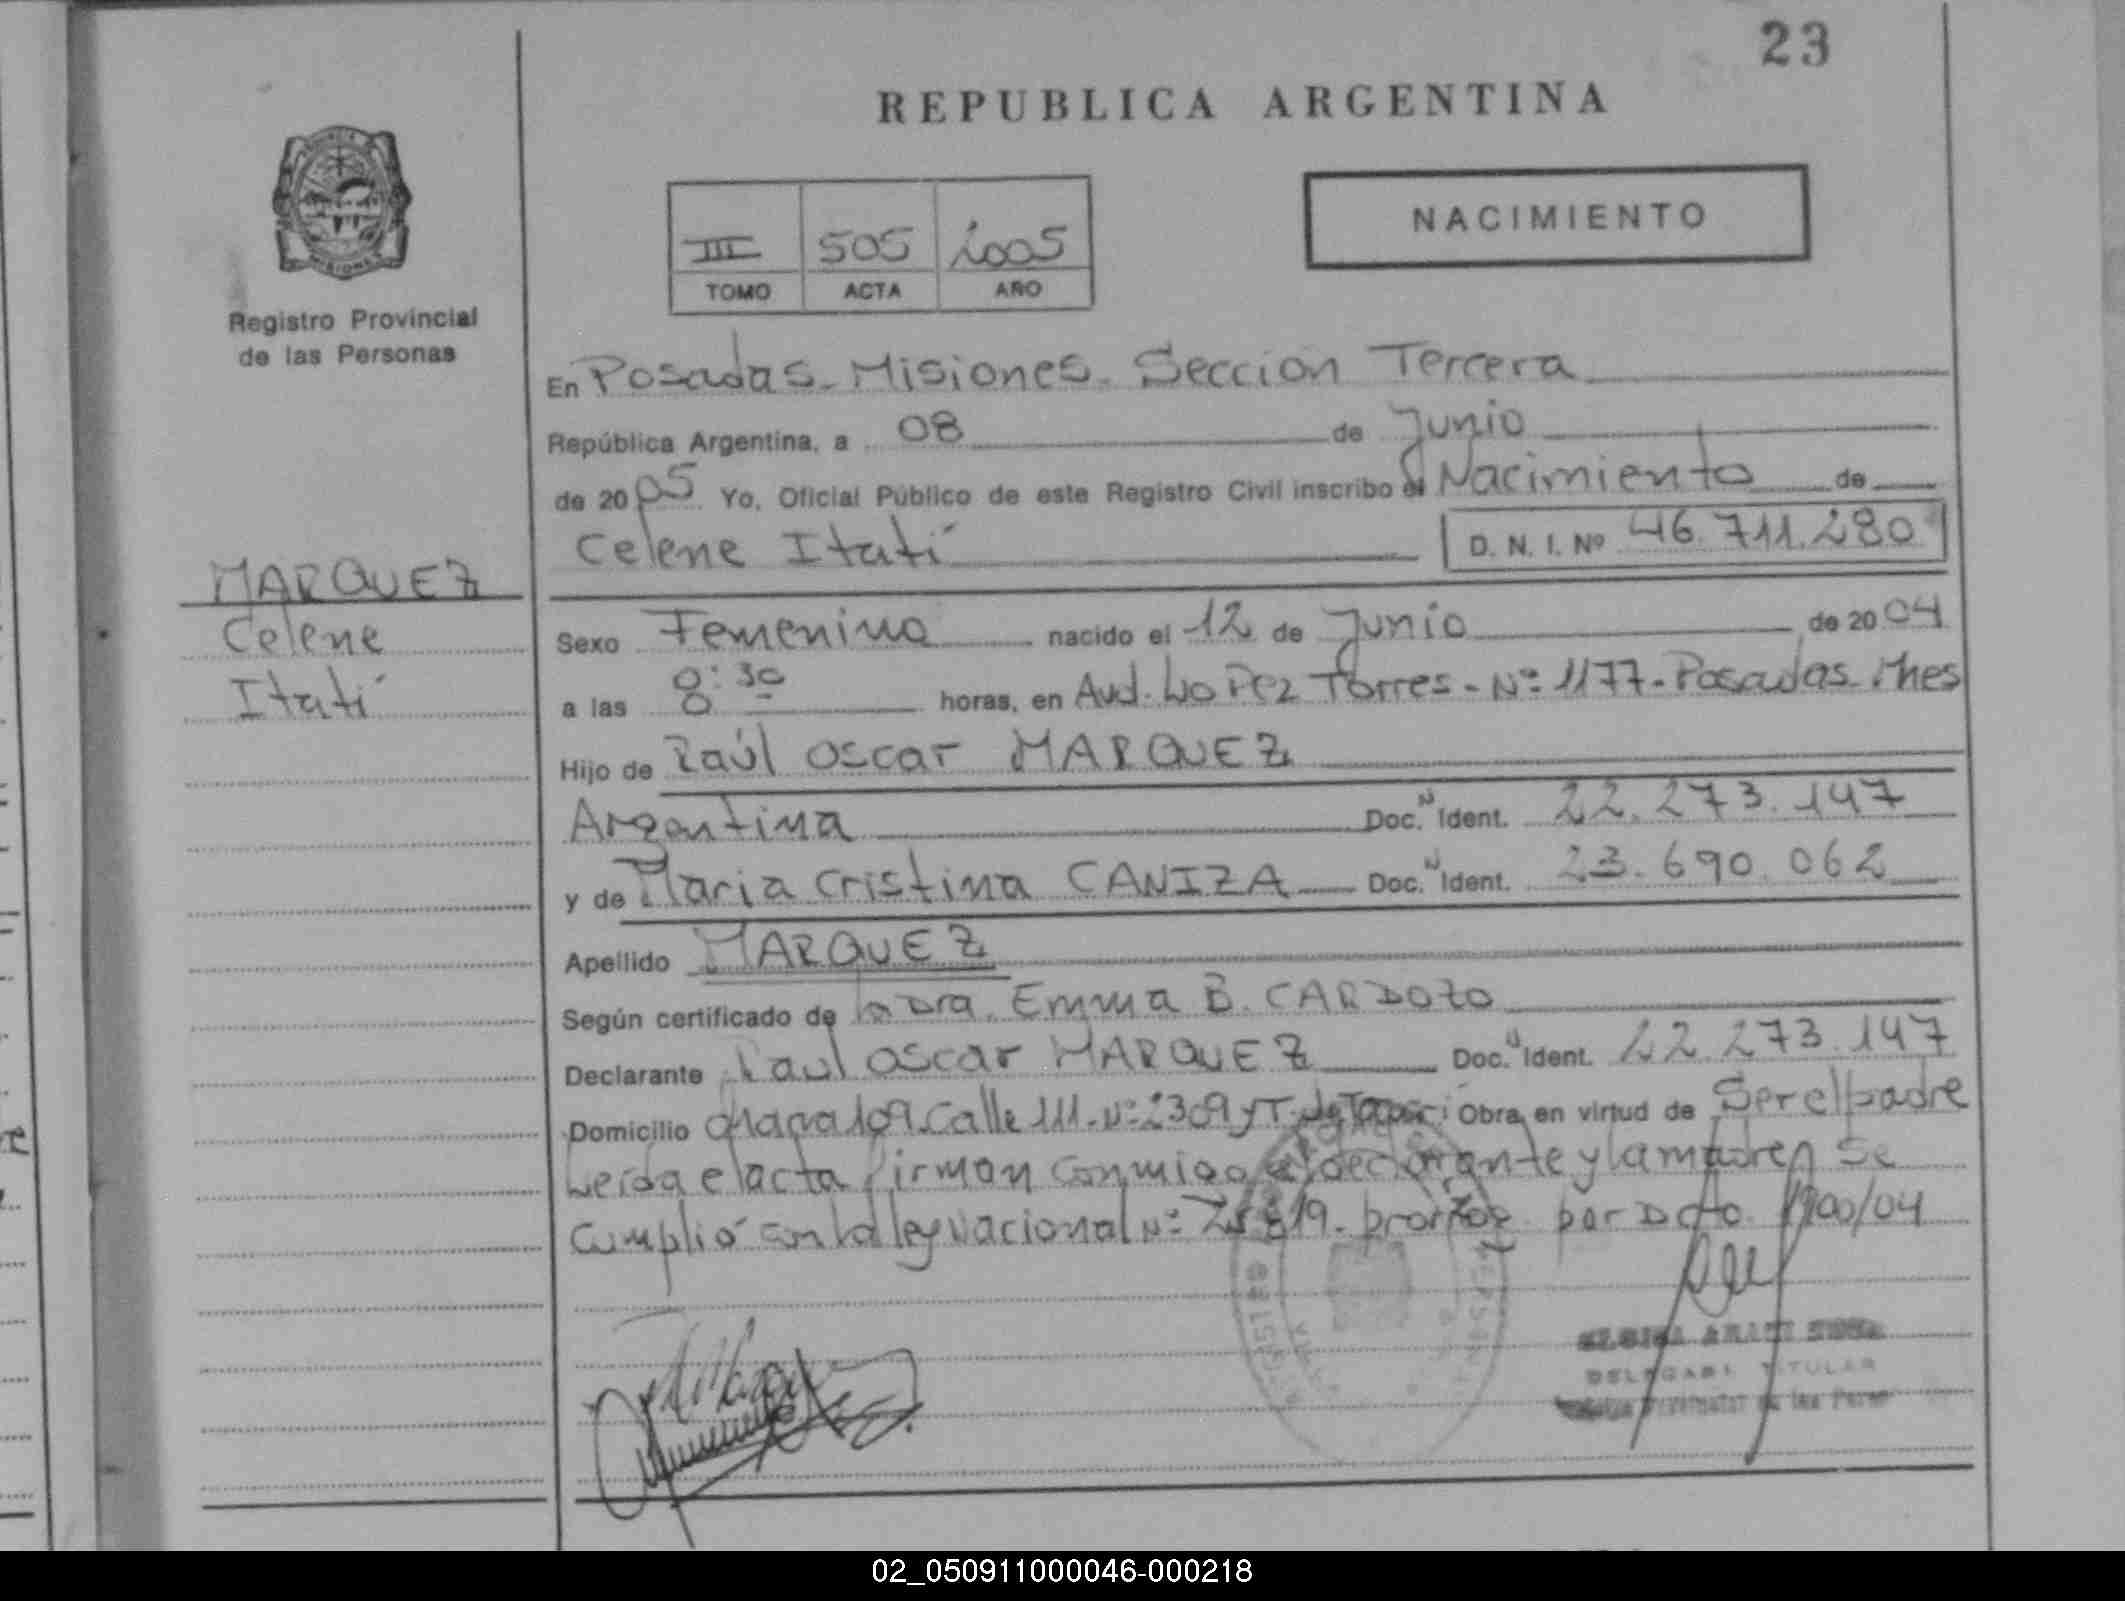 23
REPUBLICA ARGENTINA
NACIMIENTO
III 505 2005
TOMO ACTA AÑO
Registro Provincial
de las Personas
En Posadas - Misiones - Sección Tercera
República Argentina, a 08 de Junio
de 2005 Yo, Oficial Público de este Registro Civil inscribo el Nacimiento de
Celene Itatí D. N. I. Nº 46.711.280
MARQUEZ
Celene
Itatí
Sexo Femenino nacido el 12 de Junio de 2004
a las 8:30 horas, en Avd. López Torres - Nº 1177 - Posadas - Mnes
Hijo de Raúl Oscar MARQUEZ
Argentina Doc. N Ident. 22.273.147
y de Maria Cristina CANIZA Doc. N Ident. 23.690.062
Apellido MARQUEZ
Según certificado de la Dra. Emma B. CARDOZO
Declarante Raúl Oscar MARQUEZ Doc. N Ident. 22.273.147
Domicilio chacra 109. Calle 111. Nº 2309 y Obra en virtud de Ser el padre
Leída el acta firman conmigo el declarante y la madre, Se
Cumplió con la ley Nacional Nº por Dcto 1900/04
DELEGADA TITULAR
de las Personas
02_050911000046-000218